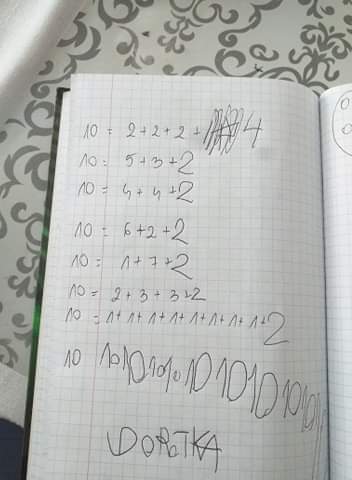 10 = 2+2+2+4
10 = 5+3+2
10 = 4+4+2
10 = 6+2+2
10 = 1+7+2
10 = 2+3+3+2
10 = 1+1+1+1+1+1+1+1+2
10 10 10 10 10 10 10 10 10 10
DOROTKA